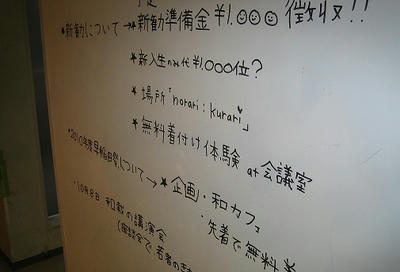 ・新勧について→★新勧準備金¥1,000徴収!!
★新入生のみ代¥1,000位?
★場所「norari:kurari」
★無料着付け体験 at会議室
・2010年度早稲田祭について→★企画・和カフェ
・先着で無料
・10月8日 和敬の講演会
(座談会で、若者のきも